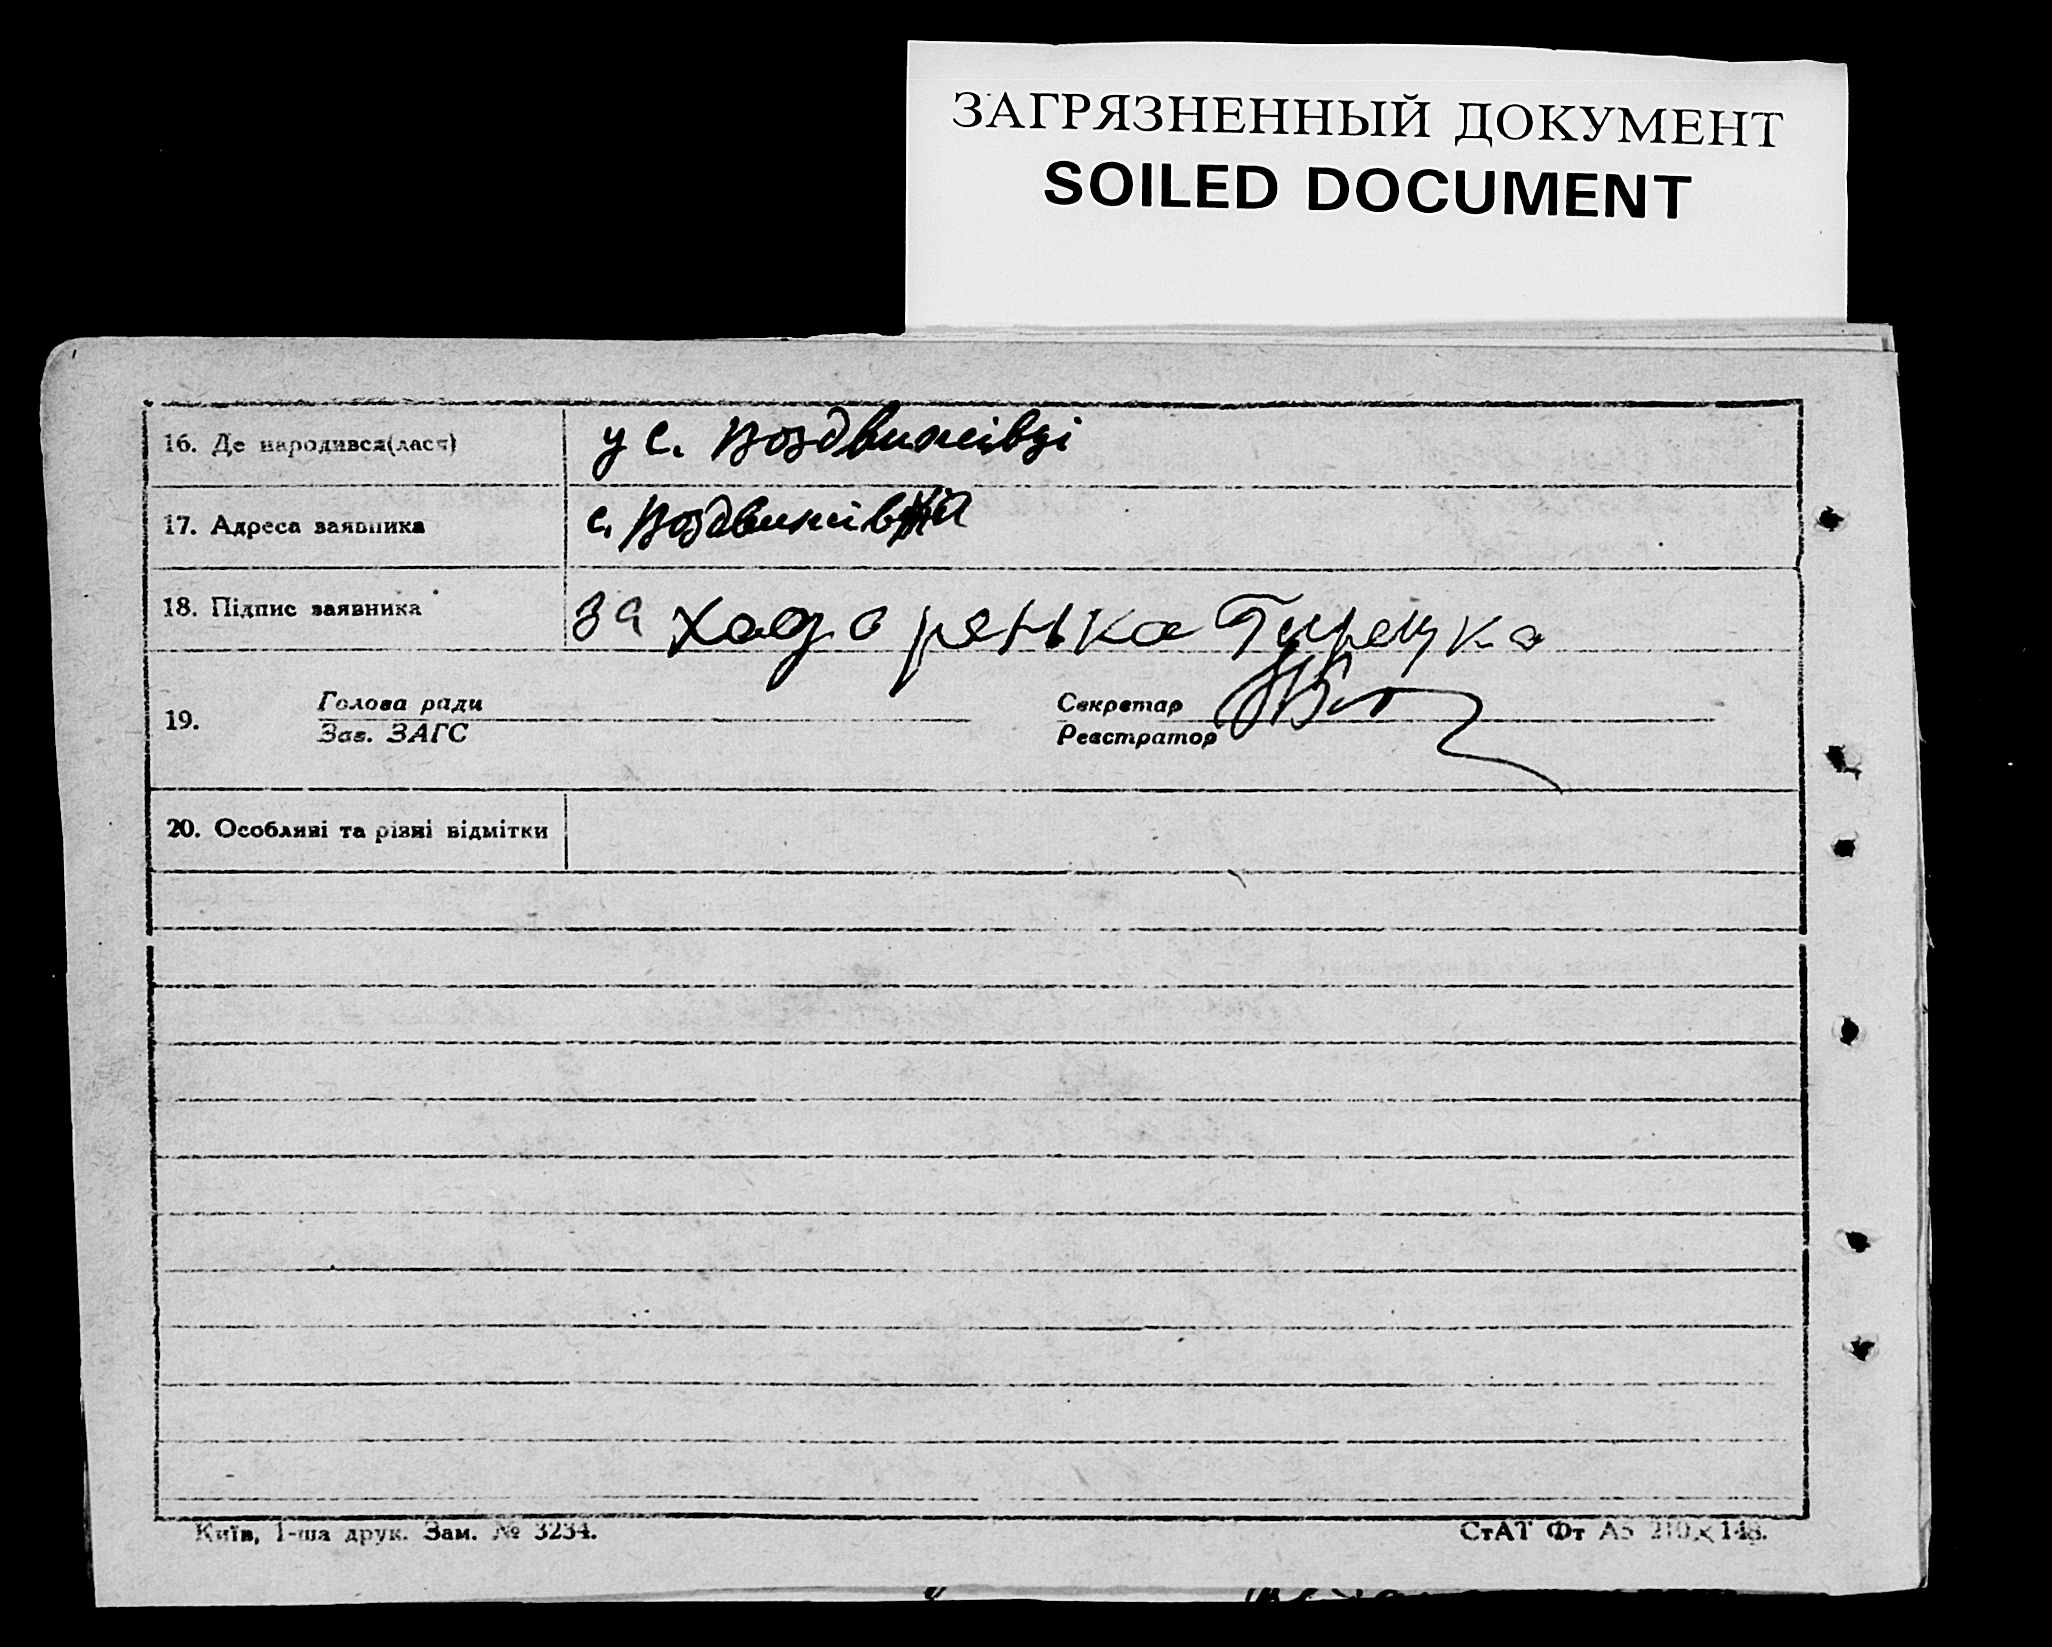 ЗАГРЯЗНЕННЫЙ ДОКУМЕНТ
SOILED DOCUMENT
16. Де народився(лася) у с. Воздвижівці
17. Адреса заявника с. Воздвижівка
18. Підпис заявника за
19. Голова ради Секретар
Зав. ЗАГС Реєстратор
20. Особливі та різні відмітки
Київ, 1-ша друк. Зам. № 3234. СтАТ Фт А5 210×148.